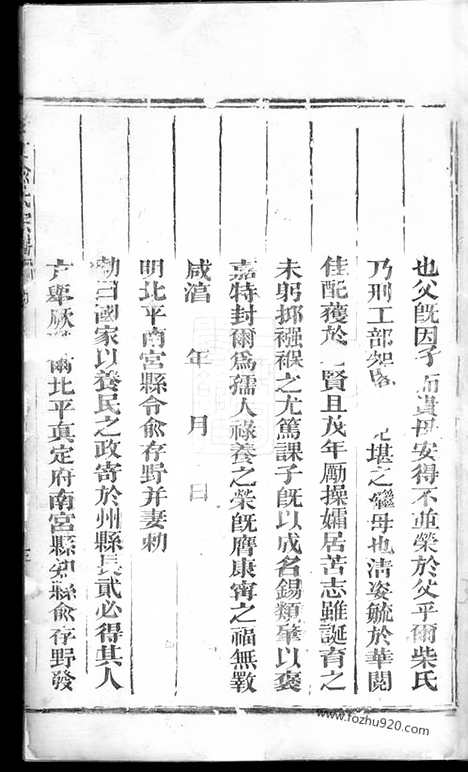 也父既因子而貴母安得不並榮於父乎爾柴氏
乃刑工部堪之繼母也清姿毓於華閥
佳配獲於賢且茂年勵操孀居苦志雖誕育之
未躬抑襁褓之尤篤課子既以成名錫類肇以褒
嘉特封爾爲孺人祿養之榮既膺康甯之福無斁
咸湻　年　月　日
明北平南宮縣令俞存野并妻勅
勅曰國家以養民之政寄於州縣長貳必得其人
方舉厥爾北平真定府南宮縣知縣俞存野發
www.fozhu920.com